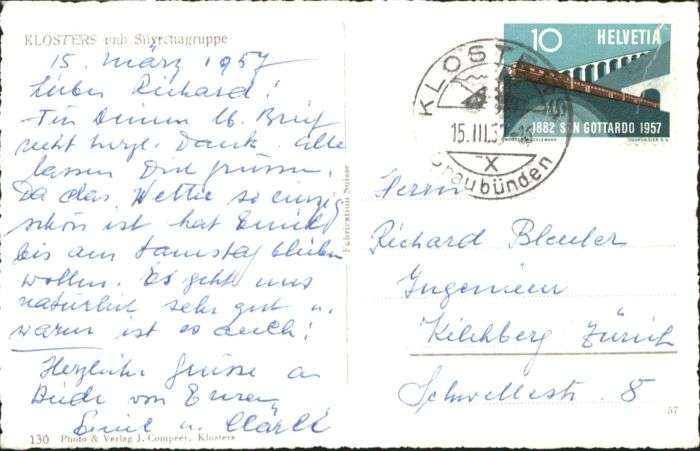 KLOSTERS mit Silvrettagruppe
15. März 1957
Lieber Richard!
Für Deinen lb. Brief
recht herzl. Dank. Alle
lassen Dich grüssen.
Da das Wetter so einzig
schön ist hat Emil
bis am Samstag bleiben
wollen. Es geht uns
natürlich sehr gut u.
warm ist es auch!
Herzliche Grüsse an
Beide von Euren
Emil u. Märli
130 Photo & Verlag J. Compeer, Klosters
Fabrication Suisse
KLOSTERS
15.III.57
X
Graubünden
10 HELVETIA
1882 SAN GOTTARDO 1957
COURVOISIER S.A.
Herrn
Richard Bleuler
Ingenieur
Kilchberg Zürich
Schwellestr. 8
57